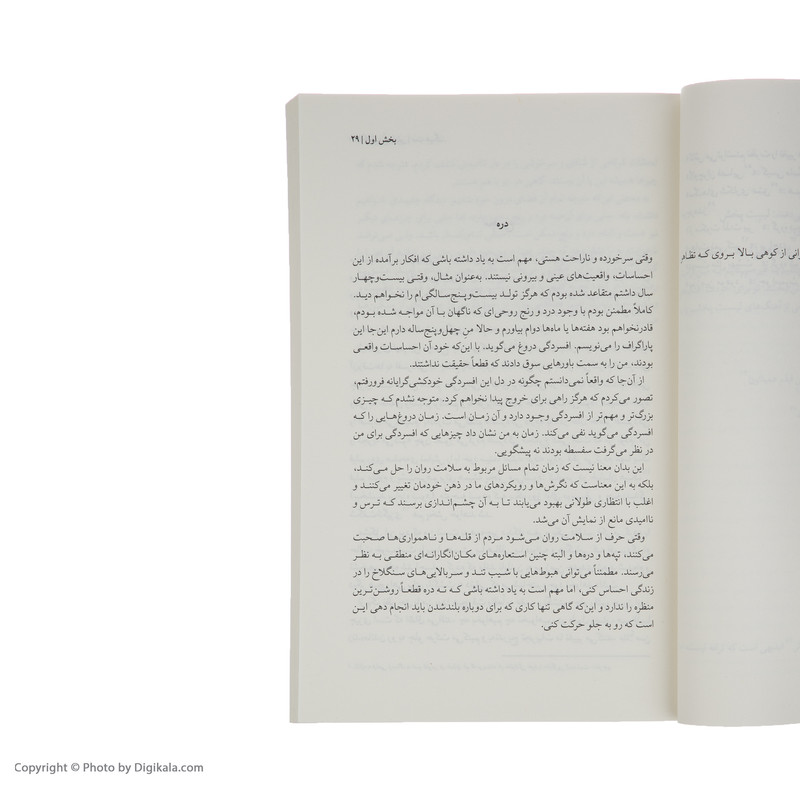 بخش اول | ۲۹
دره
وقتی سرخورده و ناراحت هستی، مهم است به یاد داشته باشی که افکار برآمده از این
احساسات، واقعیت‌های عینی و بیرونی نیستند. به‌عنوان مثال، وقتی بیست‌وچهار
سال داشتم متقاعد شده بودم که هرگز تولد بیست‌وپنج‌سالگی‌ام را نخواهم دید.
کاملاً مطمئن بودم با وجود درد و رنج روحی‌ای که ناگهان با آن مواجه شده بودم،
قادرنخواهم بود هفته‌ها یا ماه‌ها دوام بیاورم و حالا منِ چهل‌وپنج‌ساله دارم این‌جا این
پاراگراف را می‌نویسم. افسردگی دروغ می‌گوید. با این‌که خود آن احساسات واقعی
بودند، من را به سمت باورهایی سوق دادند که قطعاً حقیقت نداشتند.
از آن‌جا که واقعاً نمی‌دانستم چگونه در دل این افسردگی خودکشی‌گرایانه فرورفتم،
تصور می‌کردم که هرگز راهی برای خروج پیدا نخواهم کرد. متوجه نشدم که چیزی
بزرگ‌تر و مهم‌تر از افسردگی وجود دارد و آن زمان است. زمان دروغ‌هایی را که
افسردگی می‌گوید نفی می‌کند. زمان به من نشان داد چیزهایی که افسردگی برای من
در نظر می‌گرفت سفسطه بودند نه پیشگویی.
این بدان معنا نیست که زمان تمام مسائل مربوط به سلامت روان را حل می‌کند،
بلکه به این معناست که نگرش‌ها و رویکردهای ما در ذهن خودمان تغییر می‌کنند و
اغلب با انتظاری طولانی بهبود می‌یابند تا به آن چشم‌اندازی برسند که ترس و
ناامیدی مانع از نمایش آن می‌شد.
وقتی حرف از سلامت روان می‌شود مردم از قله‌ها و ناهمواری‌ها صحبت
می‌کنند، تپه‌ها و دره‌ها و البته چنین استعاره‌های مکان‌انگارانه‌ای منطقی به نظر
می‌رسند. مطمئناً می‌توانی هبوط‌هایی با شیب تند و سربالایی‌های سنگلاخ را در
زندگی احساس کنی، اما مهم است به یاد داشته باشی که ته دره قطعاً روشن‌ترین
منظره را ندارد و این‌که گاهی تنها کاری که برای دوباره بلندشدن باید انجام دهی این
است که رو به جلو حرکت کنی.
از کوهی بالا بروی که
Copyright © Photo by Digikala.com